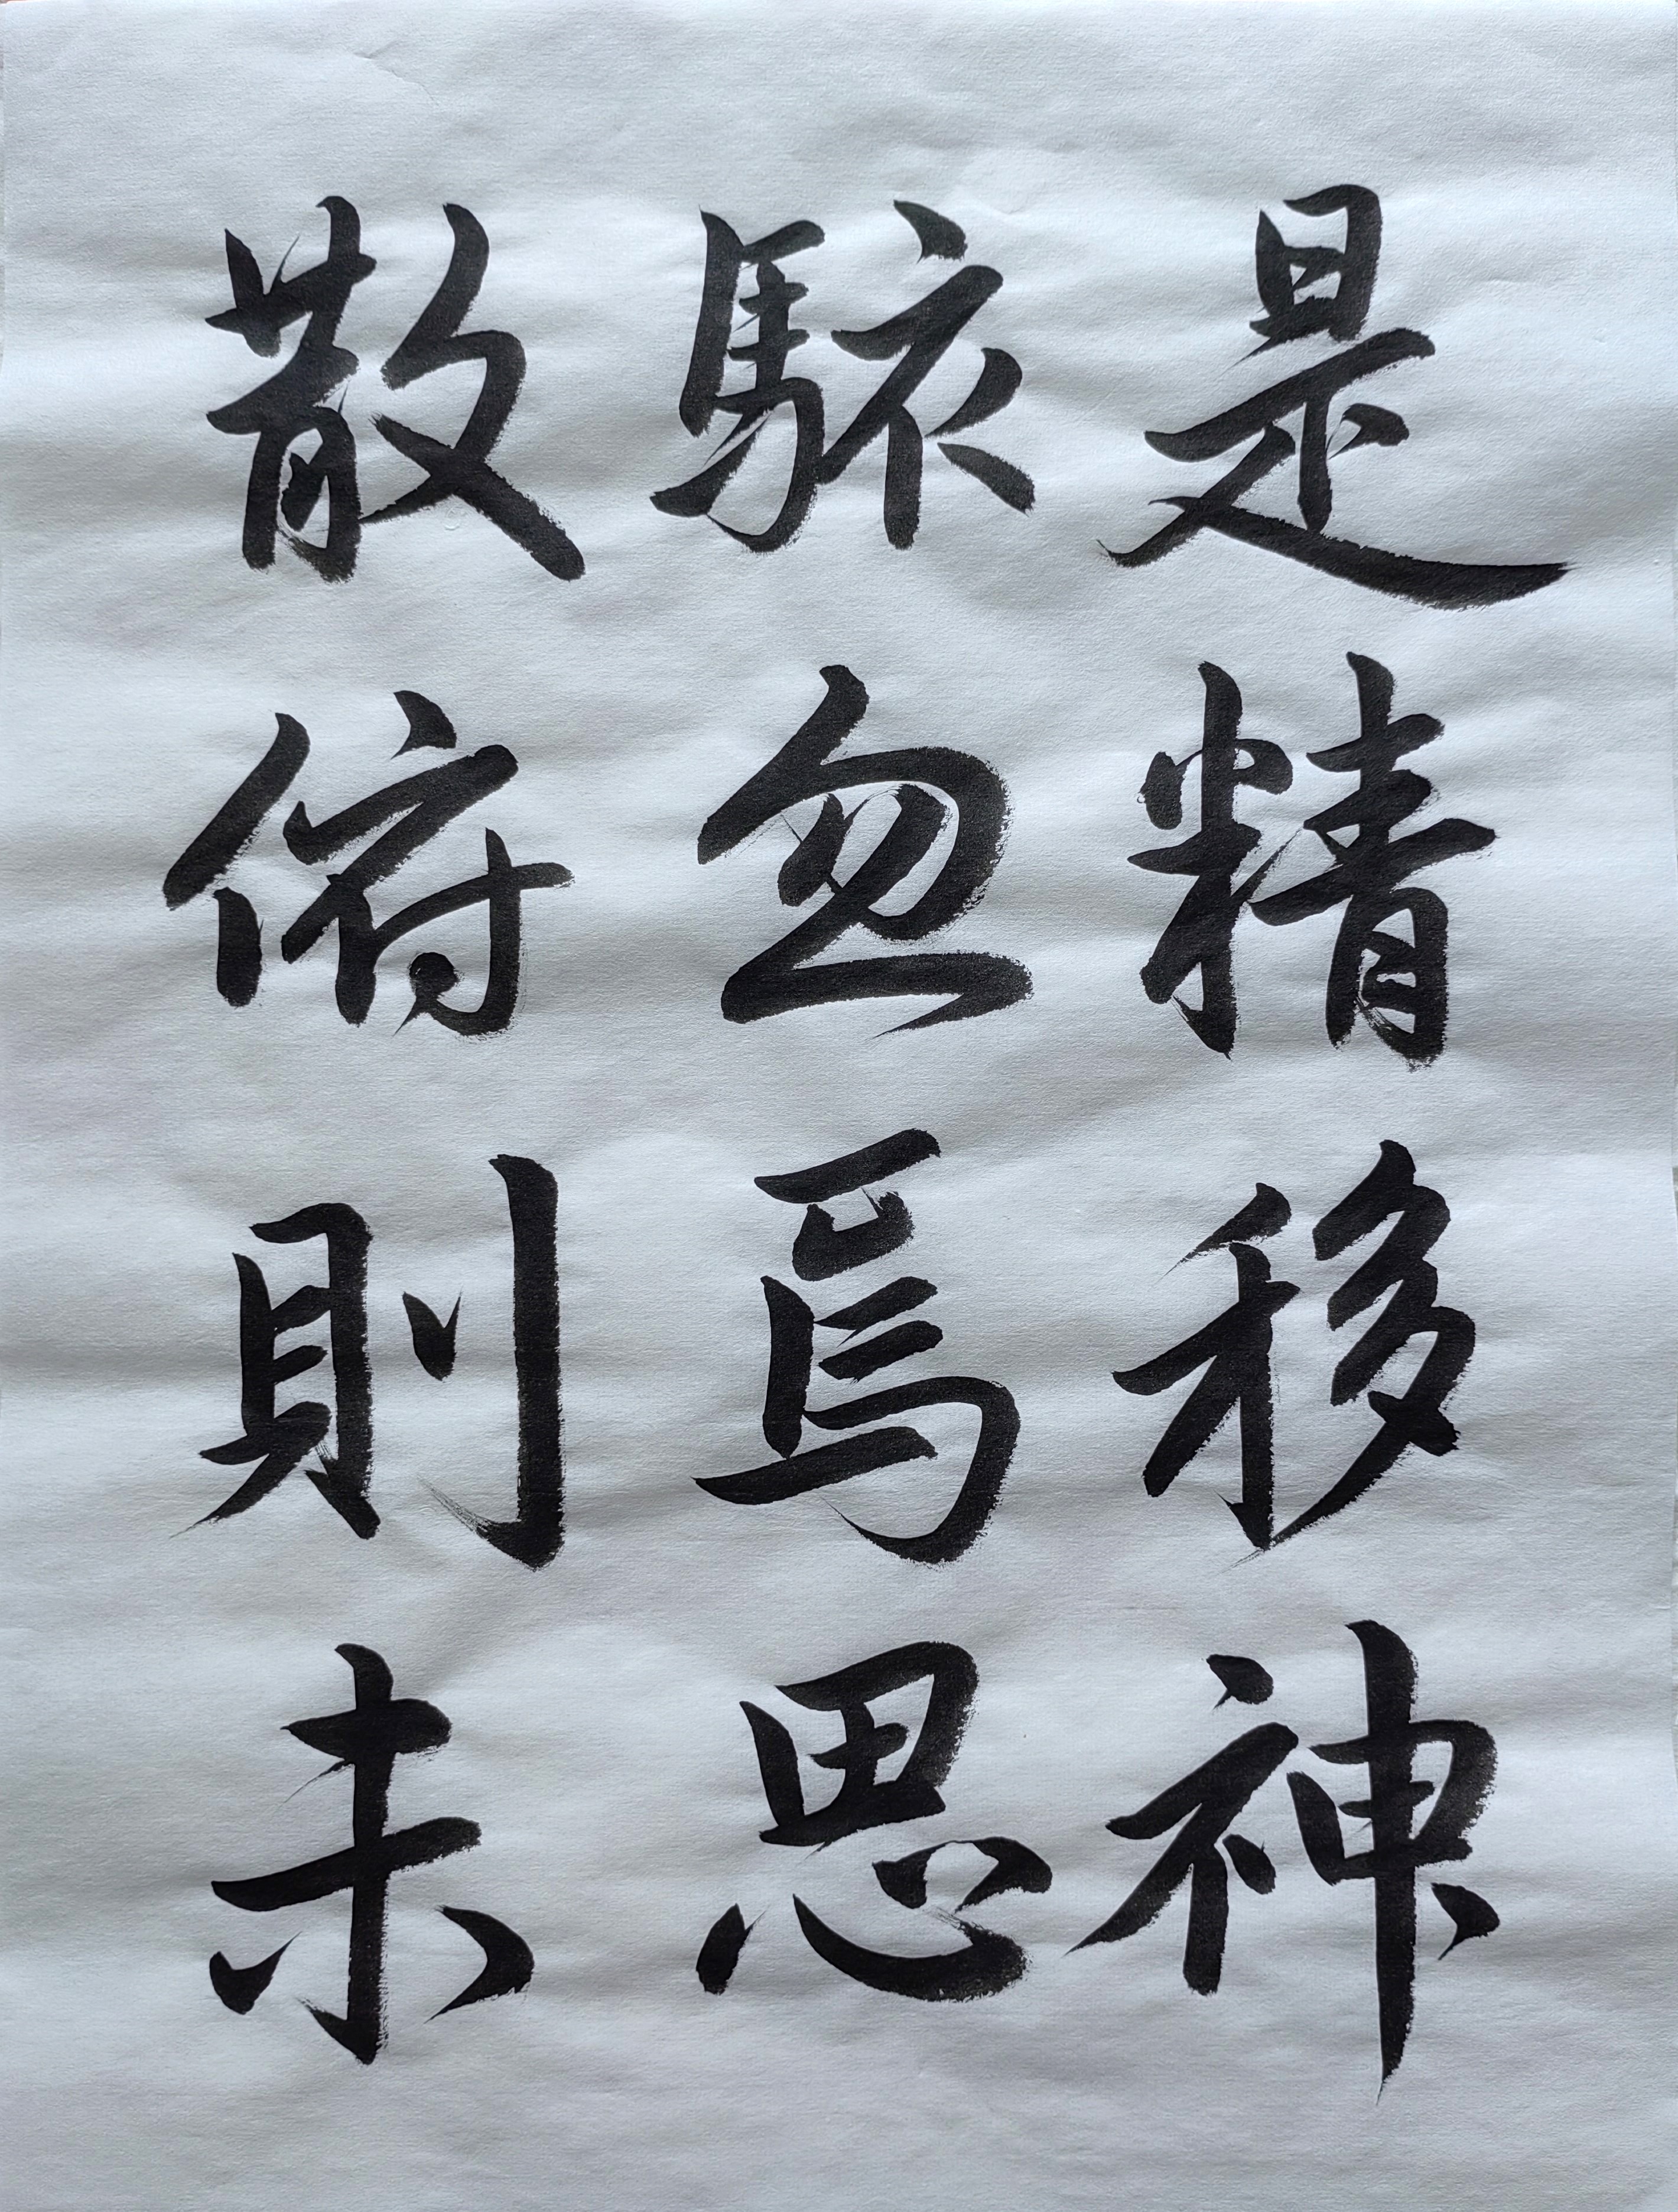 是精移神
駭忽焉思
散俯則未